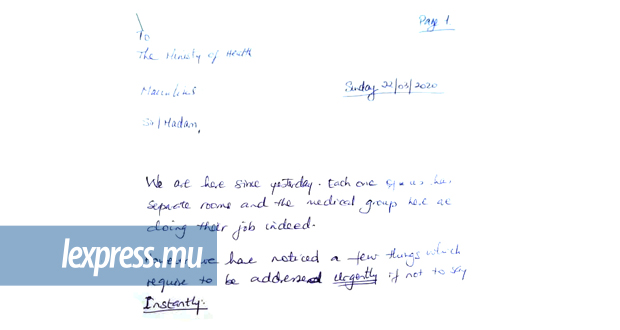 Page 1
To
The Ministry of Health
Mauritius
Sunday 22/03/2020
Sir/Madam,
We are here since yesterday. Each one of us has
separate rooms and the medical group here are
doing their job indeed.
we have noticed a few things which
require to be addressed urgently if not to say
Instantly.
lexpress.mu